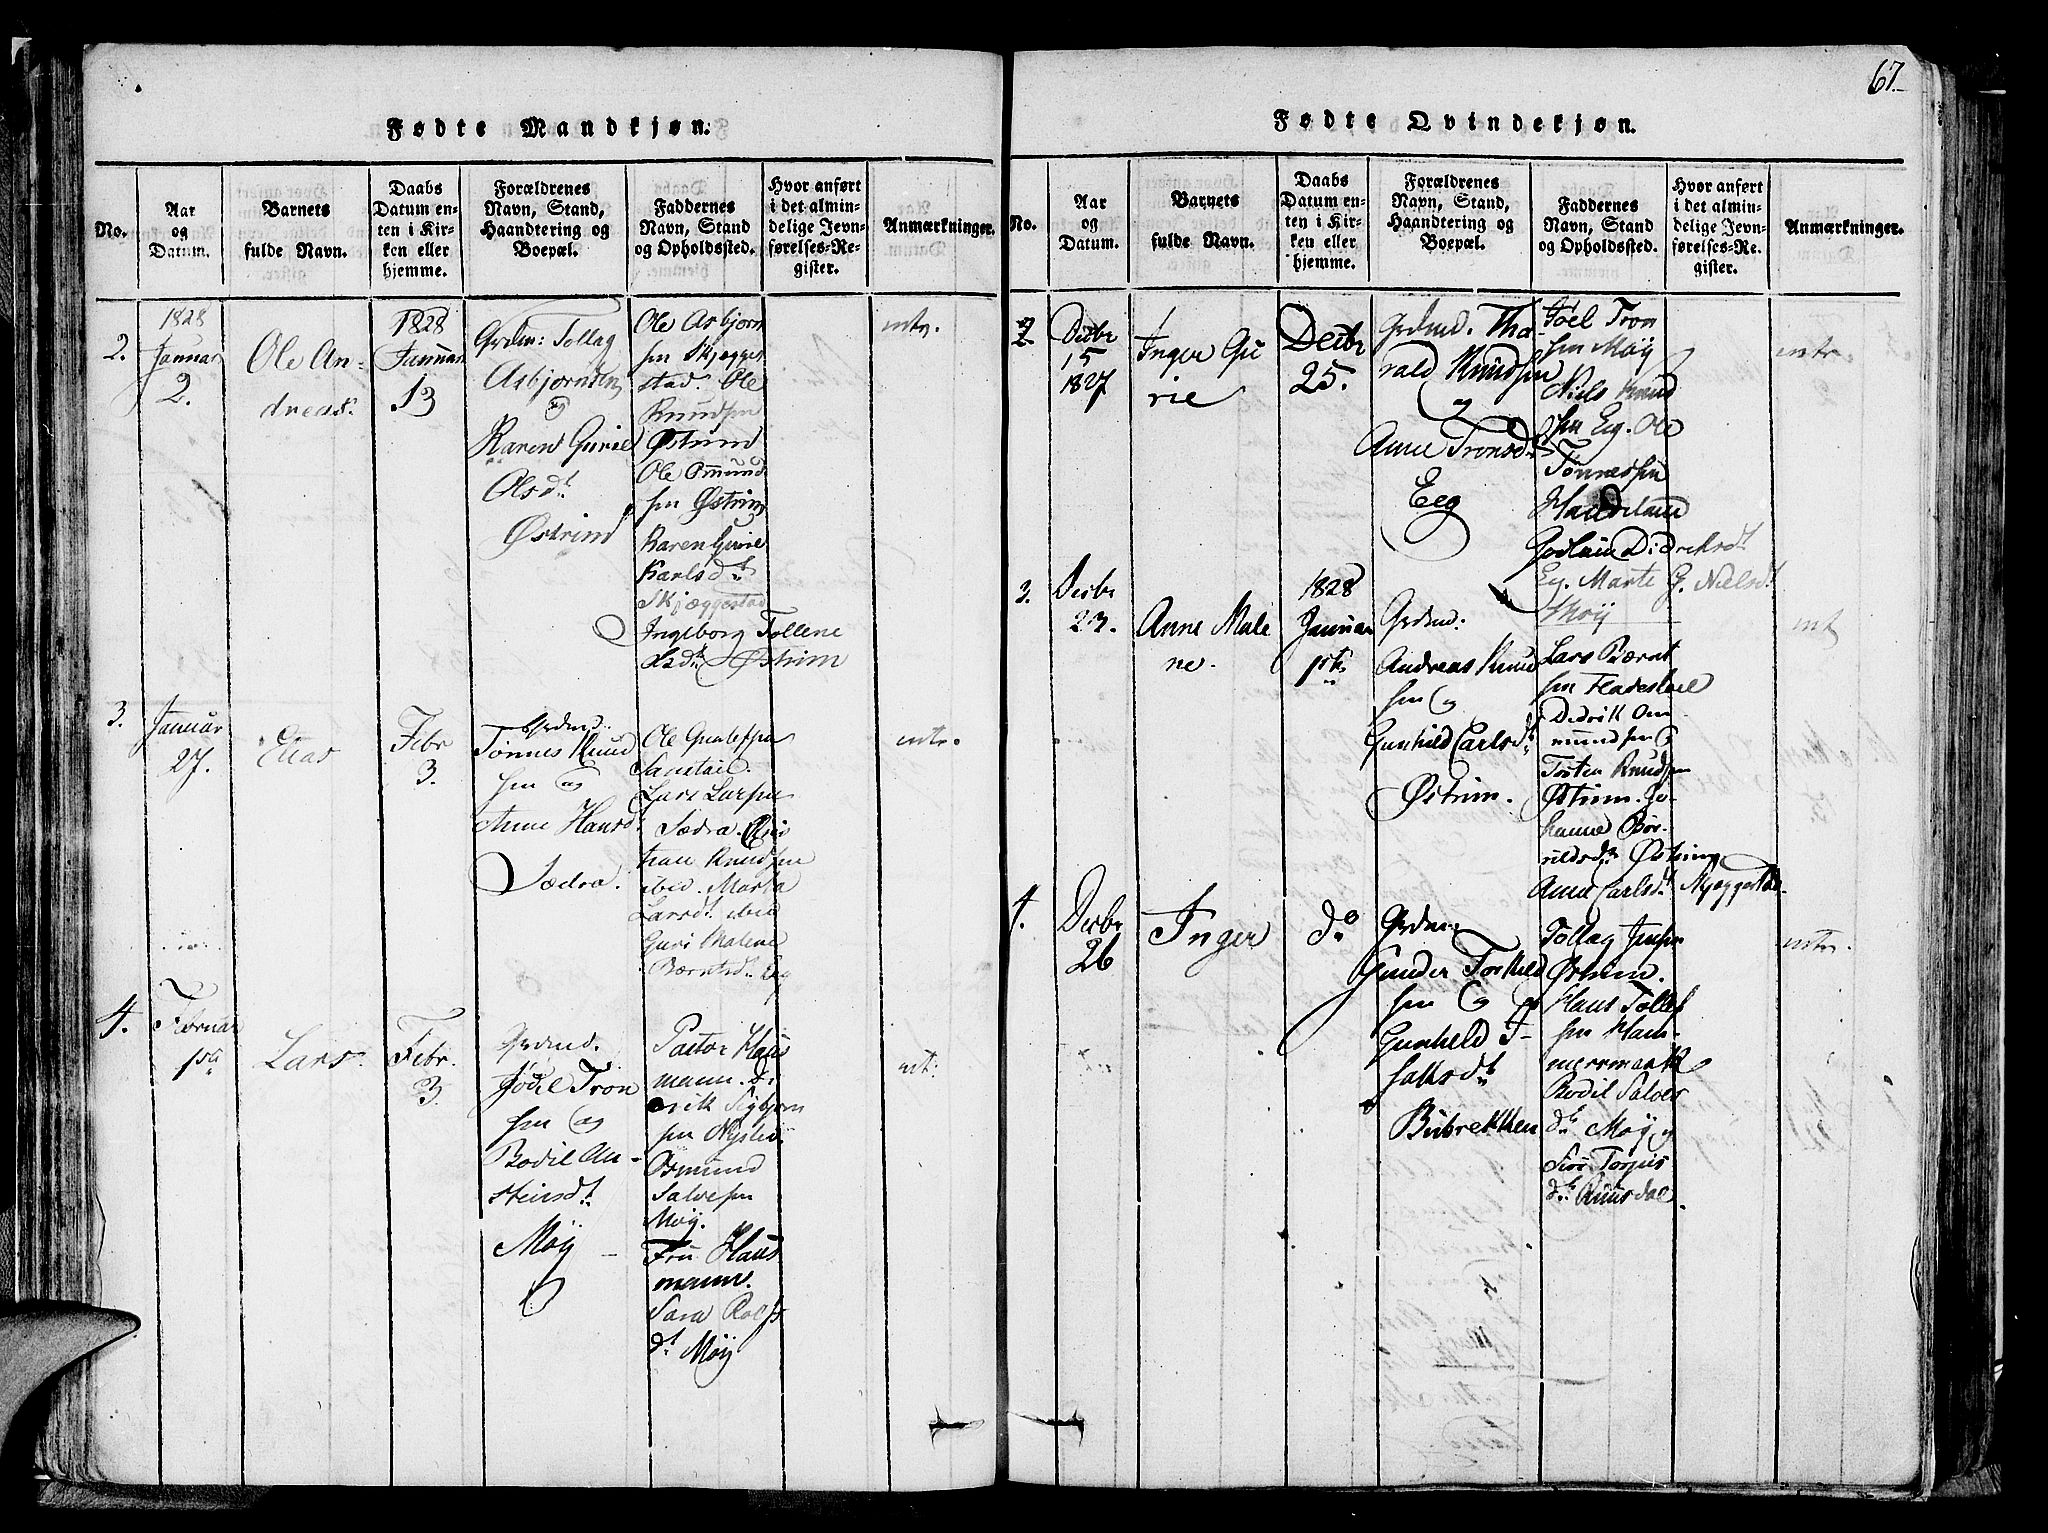 67.
Fødte Mandkjøn.
No.
Aar
og
Datum.
Barnets
fulde Navn.
Daabs
Datum en-
ten i Kir-
ken eller
hjemme.
Forældrenes
Navn, Stand,
Haandtering og
Boepæl.
Faddernes
Navn, Stand
og Opholdssted.
Hvor anført
i det almin-
delige Jevn-
førelses-Re-
gister.
Anmærkninger.
2.
1828
Januar
2.
Ole An-
dreas.
1828
Januar
13
Grdm: Tollag
Asbjørnsen
og
Karen Gurie
Olsdt
Østrim
Ole Asbjørn
sen Skjegge
stad. Ole
Knudsen
Østrim
Ole Omund
sen Østrim
Karen Gurie
Karlsdt
Skjæggestad
Ingeborg Tollene
Olsdt Østrim
intr.
3.
Januar
27.
Elias
Febr
3.
Grdmd.
Tønnes Knud
sen og
Anne Hansd.
Sædra.
Ole Gunlefsen
Lars Larsen
Sædra.
Knudsen
ibid. Marta
Larsdt ibid
Guri Malene
Berntsdt Eeg
intr.
4.
Februar
1ste
Lars.
Febr.
3.
Grdmd.
Joël Tron
sen og
Bodil An-
steinsdt
Møÿ
Pastor Haus
mann. Di
drik Sigbjørn
sen
Osmund
Salvesen
Møÿ.
Fru Haus
mann.
Sara Rolfs
dt Møÿ
int.
Fødte Qvindekjøn.
No.
Aar
og
Datum.
Barnets
fulde Navn.
Daabs
Datum en-
ten i Kir-
ken eller
hjemme.
Forældrenes
Navn, Stand,
Haandtering og
Boepæl.
Faddernes
Navn, Stand
og Opholdssted.
Hvor anført
i det almin-
delige Jevn-
førelses-Re-
gister.
Anmærkninger.
2
Decbr
15
1827
Inger Gu
rie
Decbr
25.
Grdmd. Tha-
rald Knudsen
og
Anne Tronsdt
Eeg
Joel Tron
sen Møÿ
Niels Knud
sen Eeg. Ole
Tønnessen
Haudeland
Didreksdt
Eeg. Marte G. Nielsdt
Møÿ
intr
3.
Decbr
23.
Anne Male
ne.
1828
Januar
1ste
Grdmd:
Andreas Knud
sen og
Gunhild Carlsdt
Østrim.
Lars Bernt
sen Fladestøel
Didrik Om
mundsen
Tosten Knudsen
Østrim. Jo-
hanne Bør-
rildsdt Østrim
Anne Carlsdt Skjæggestad.
int
4.
Decbr
26
Inger
do
Grdm.
Gunder Torkild
sen og
Gunheld I-
saksdt
Birbrekken
Tollag Jensen
Østrim.
Hans Tollef
sen Ham-
mersmark
Bodil Salves
dt Møÿ og
Siri Torjus
dt Kuusdal.
intr.